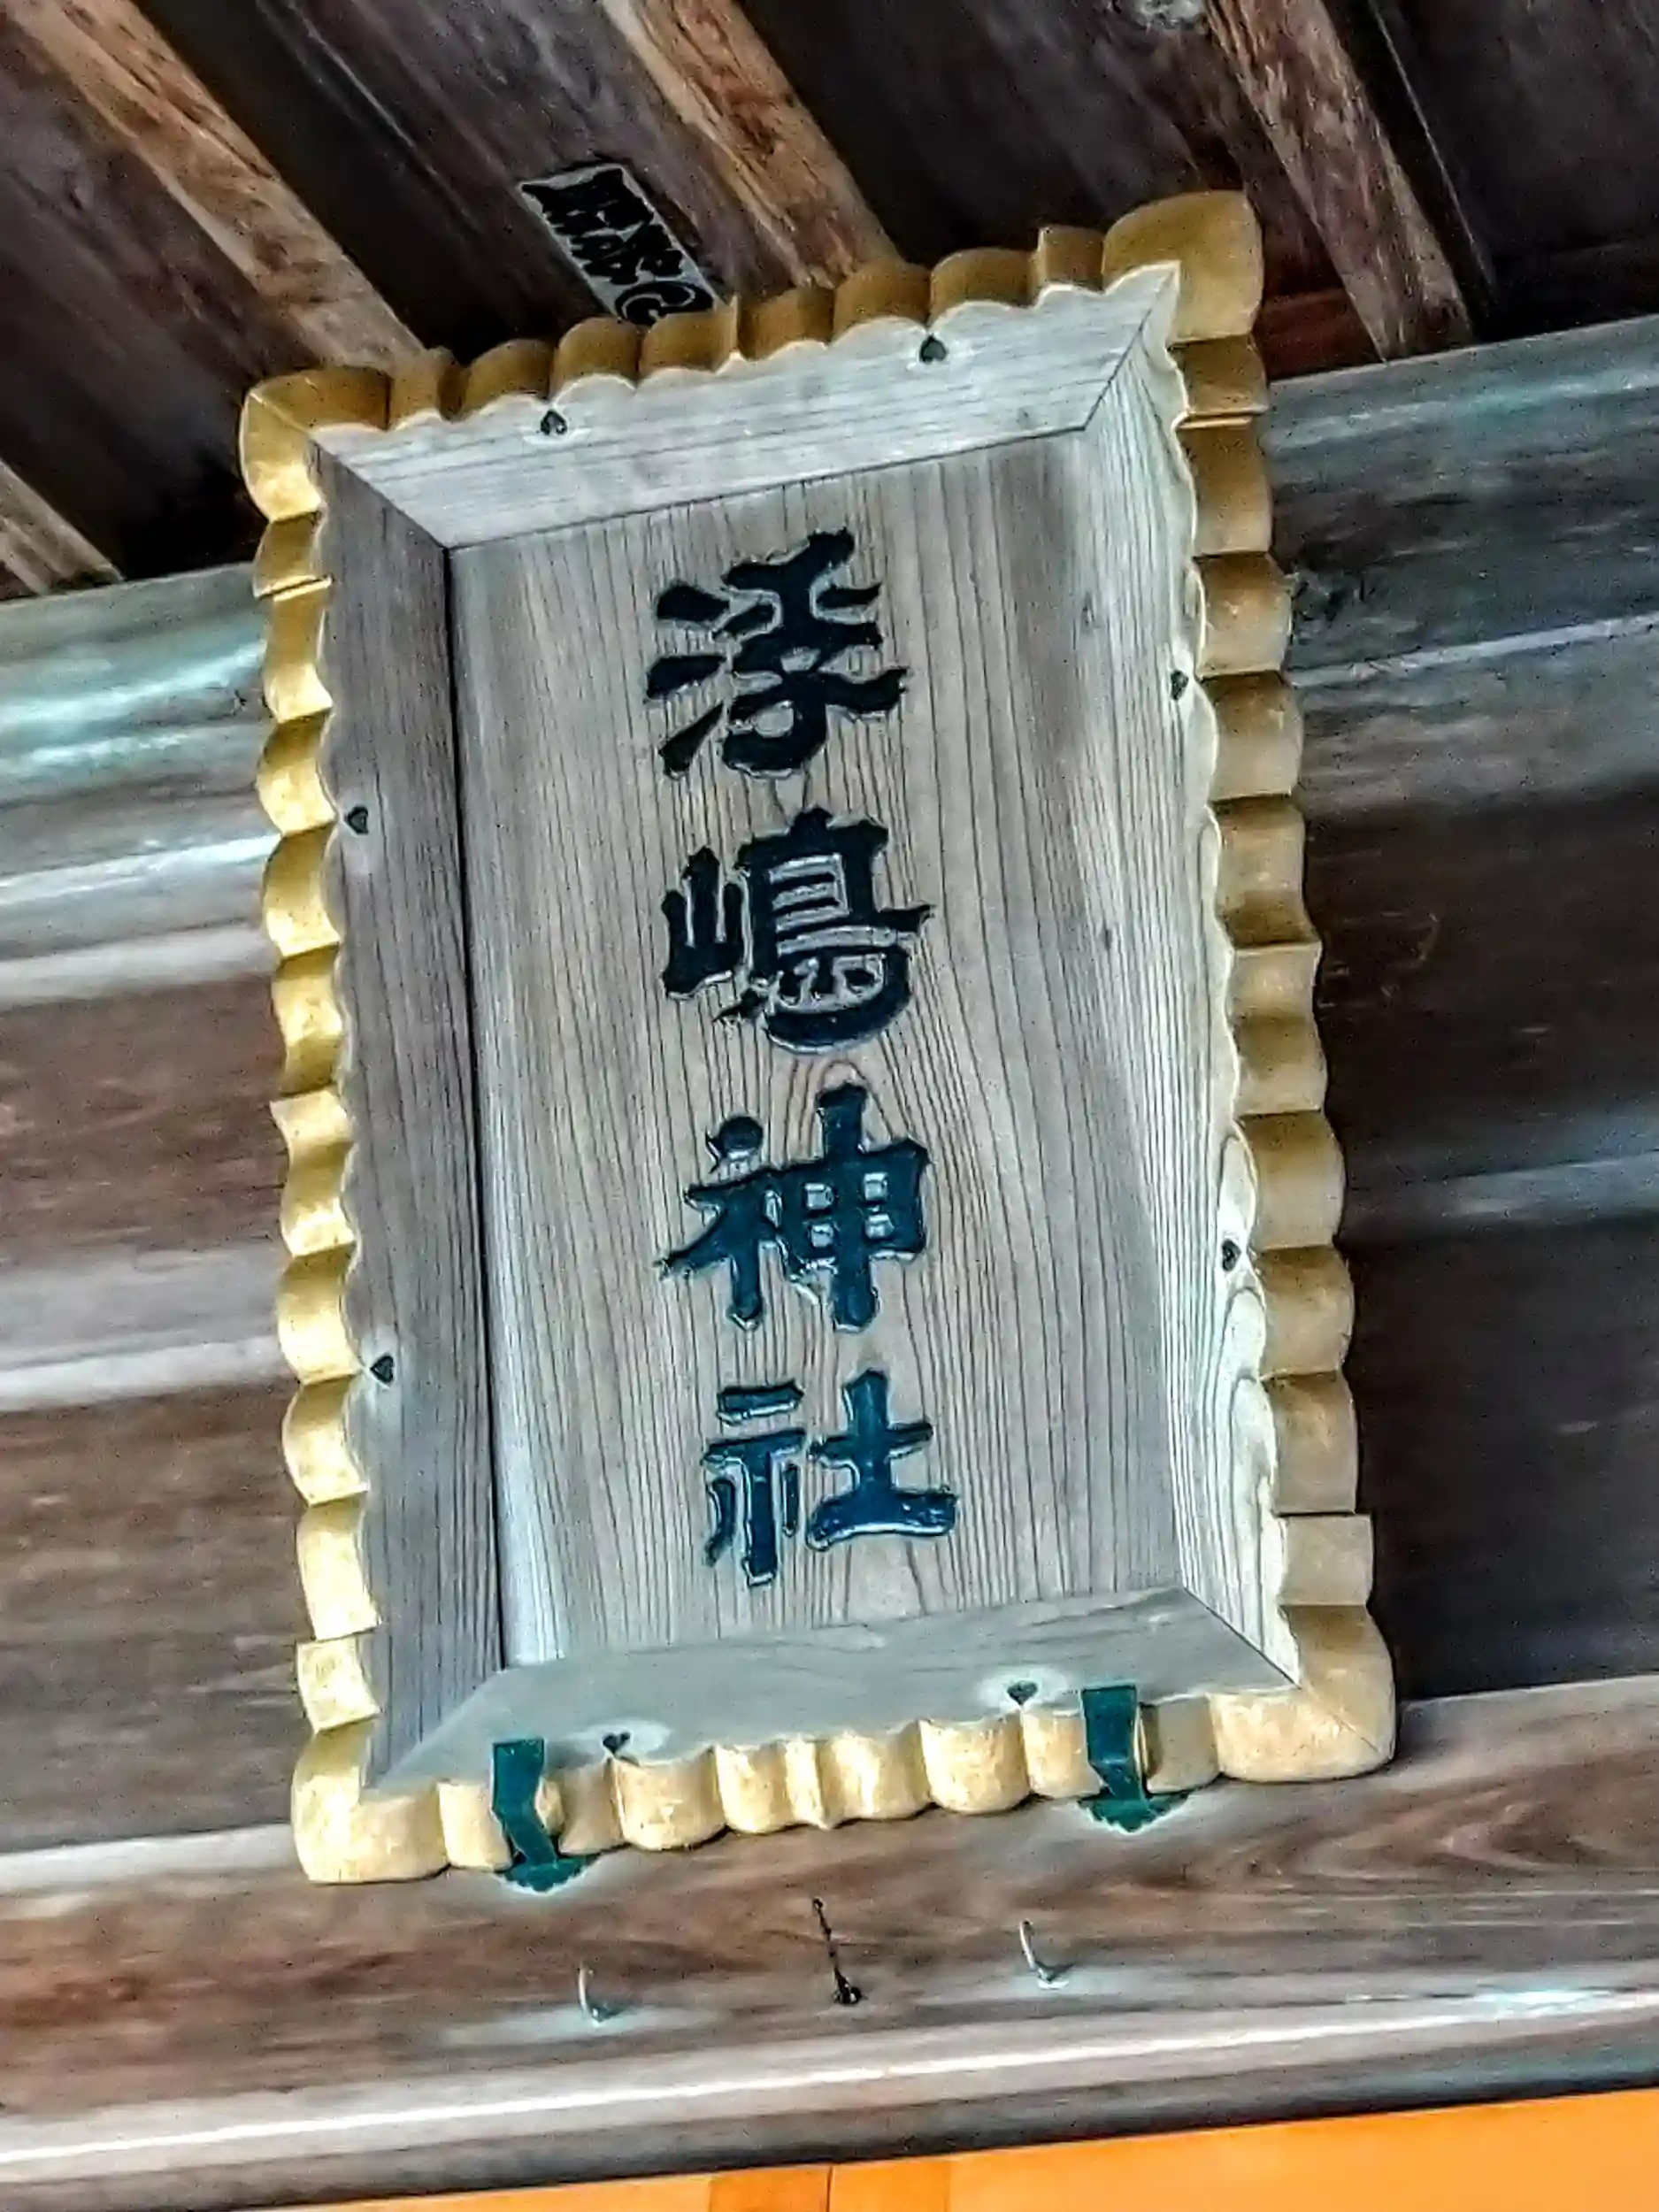 浮嶋神社